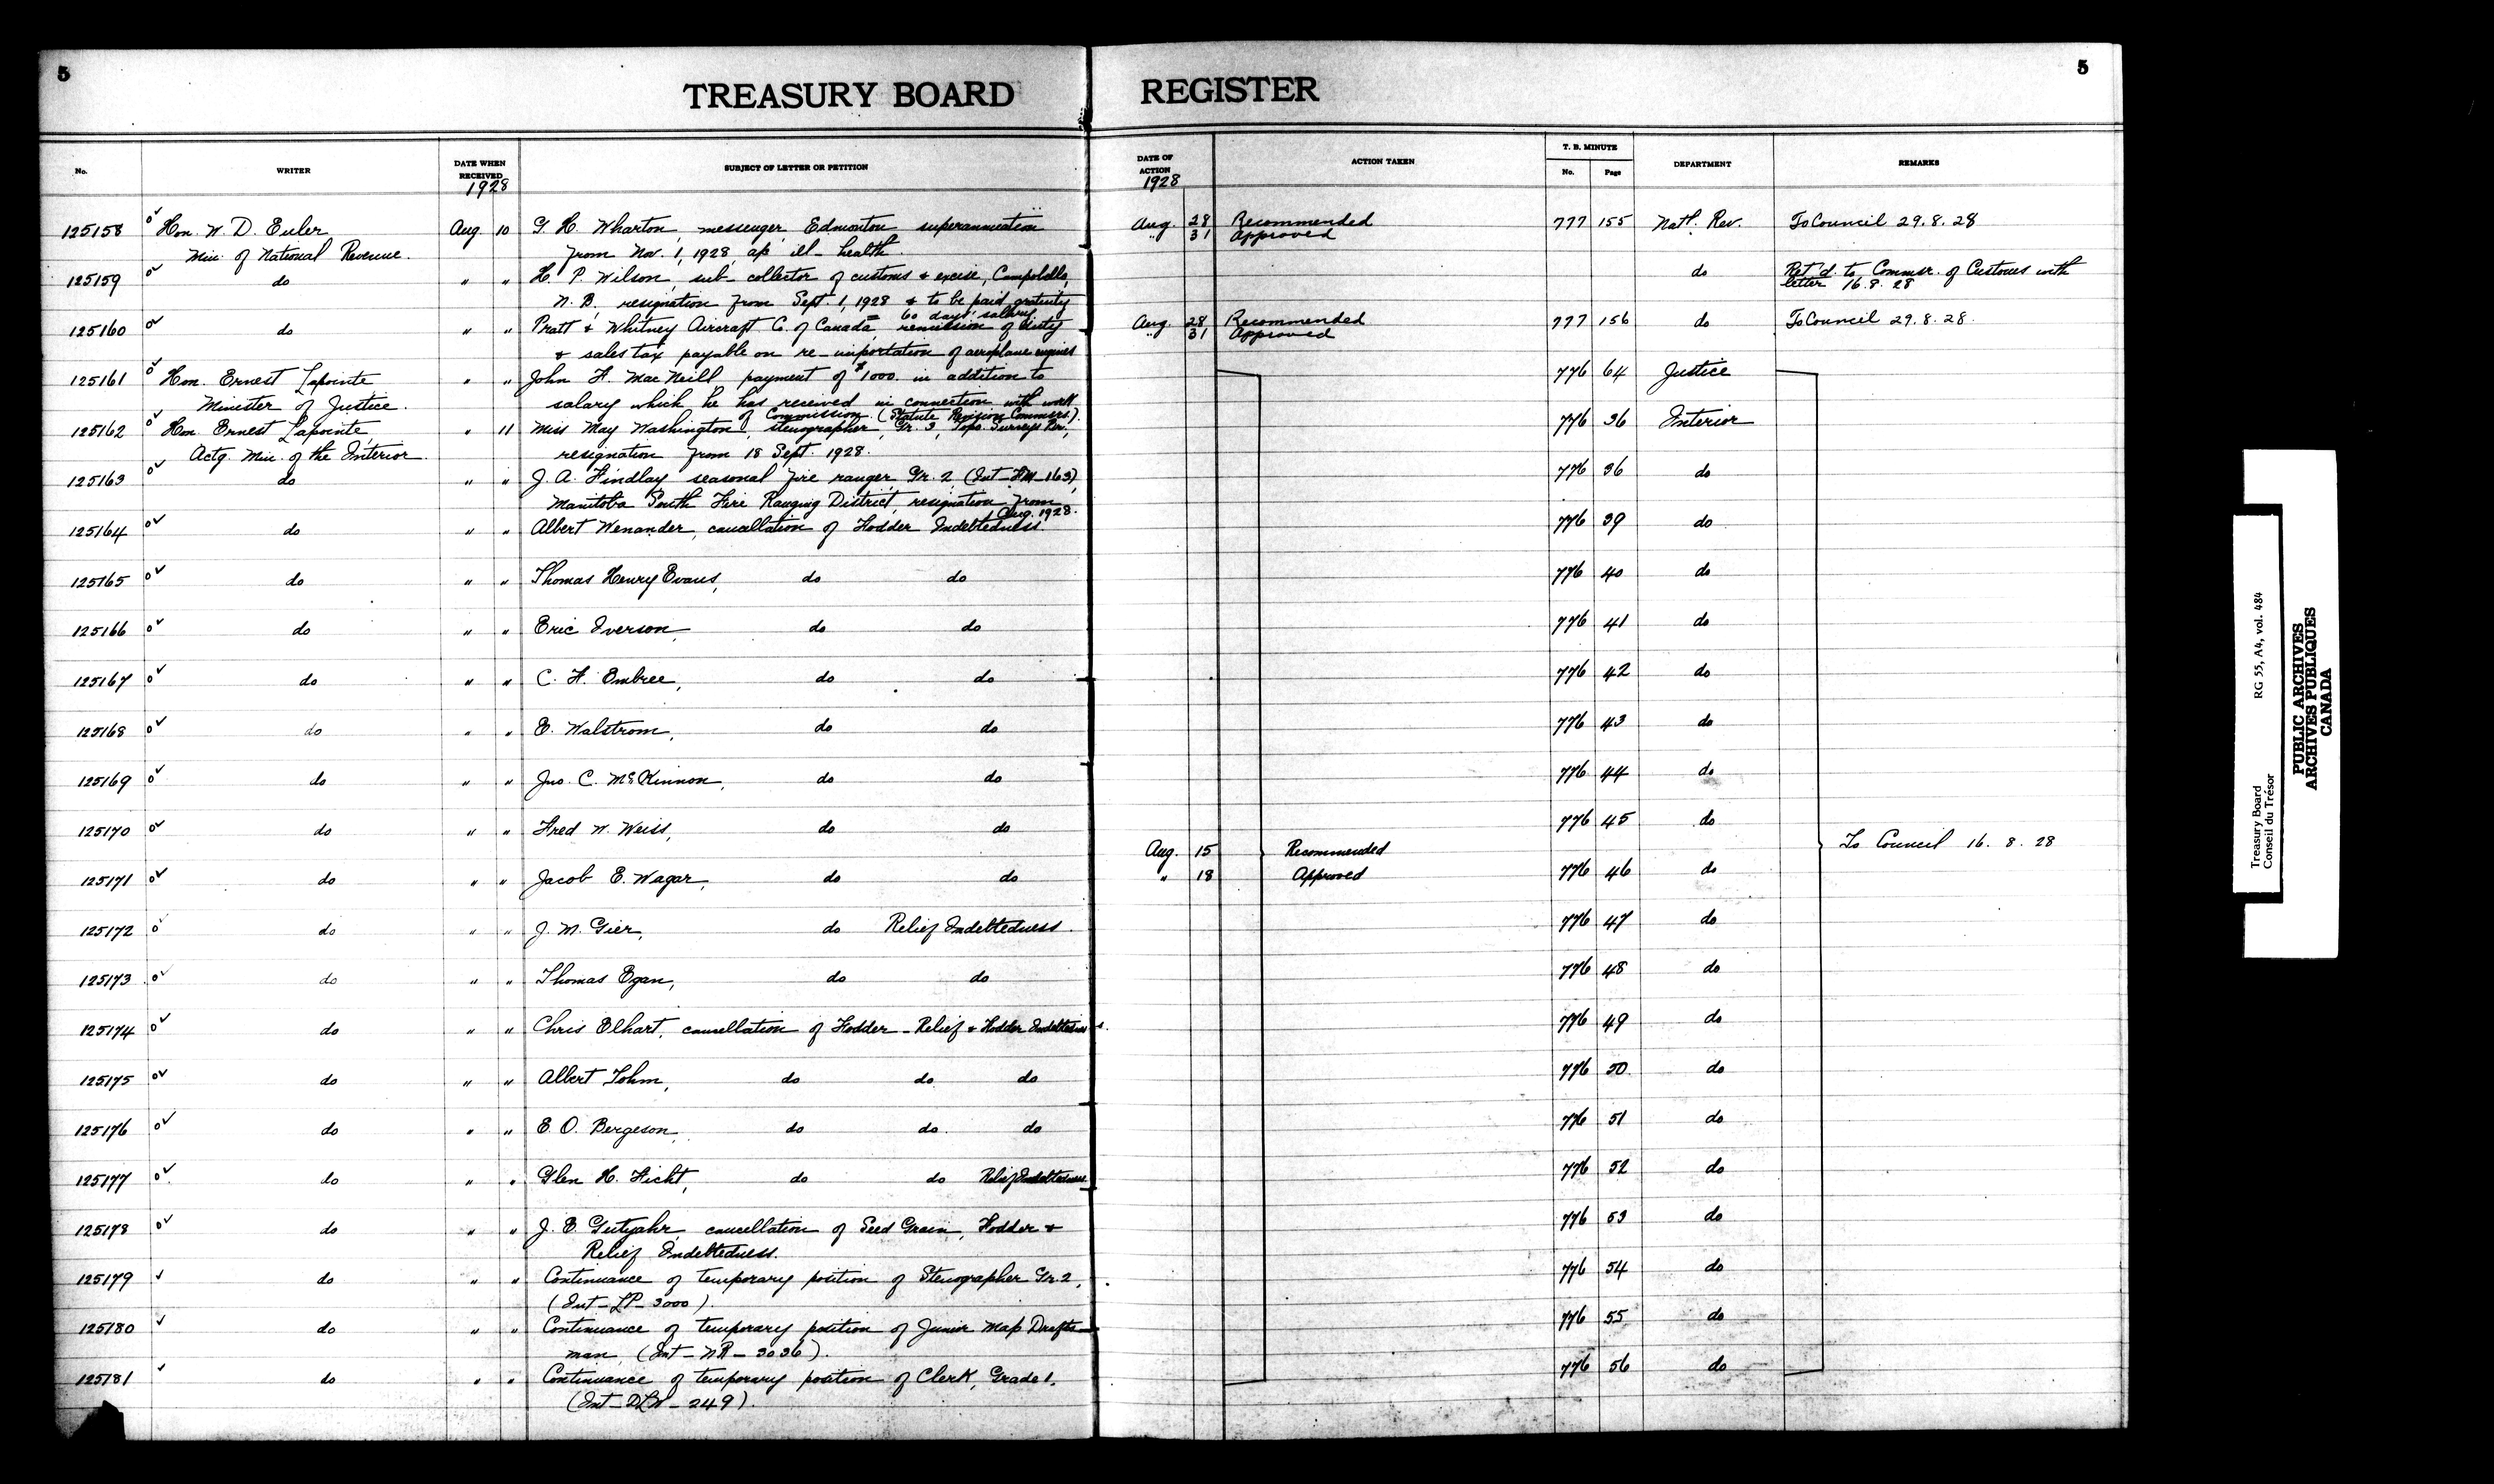 5
TREASURY BOARD REGISTER
5
No. WRITER DATE WHEN RECEIVED SUBJECT OF LETTER OR PETITION DATE OF ACTION ACTION TAKEN T. B. MINUTE No. Page DEPARTMENT REMARKS
1928 1928
125158 Hon. W. D. Euler Aug. 10 G. H. Wharton, messenger, Edmonton superannuation Aug. 28 Recommended 777 155 Nat'l. Rev. To Council 29.8.28
Min. of National Revenue. from Nov. 1, 1928, a/c ill-health. " 31 Approved
125159 do " " H. P. Wilson, sub-collector of customs & excise, Campobello, do Ret'd. to Commsr. of Customs with
N. B. resignation from Sept. 1, 1928 & to be paid gratuity letter 16.8.28
60 days' salary
125160 do " " Pratt & Whitney Aircraft Co. of Canada, remission of duty Aug. 28 Recommended 777 156 do To Council 29.8.28.
& sales tax payable on re-importation of aeroplane engines " 31 Approved
125161 Hon. Ernest Lapointe " " John F. MacNeill payment of $1000. in addition to 776 64 Justice
Minister of Justice. salary which he has received in connection with work
of Commission. (Statute Revision Commsrs.)
125162 Hon. Ernest Lapointe, " 11 Miss May Washington, stenographer, Gr. 3, Topo. Surveys 776 36 Interior
Actg. Min. of the Interior resignation from 18 Sept. 1928.
125163 do " " J. A. Findlay seasonal fire ranger, Gr. 2, (Int-FM-163), 776 36 do
Manitoba South Fire Ranging District, resignation from
Aug. 1928.
125164 do " " Albert Wenander, cancellation of Fodder Indebtedness 776 39 do
125165 do " " Thomas Henry Evans, do do 776 40 do
125166 do " " Eric Iverson, do do 776 41 do
125167 do " " C. F. Embree, do do 776 42 do
125168 do " " E. Walstrom, do do 776 43 do
125169 do " " Jno. C. McKinnon, do do 776 44 do
125170 do " " Fred W. Weiss, do do 776 45 do
Aug. 15 Recommended To Council 16.8.28
125171 do " " Jacob E. Wagar, do do " 18 Approved 776 46 do
125172 do " " J. M. Gier, do Relief Indebtedness. 776 47 do
125173 do " " Thomas Egan, do do 776 48 do
125174 do " " Chris Elhart, cancellation of Fodder-Relief & Fodder Indebtedness. 776 49 do
125175 do " " Albert Tohm, do do do 776 50 do
125176 do " " E. O. Bergeson, do do. do 776 51 do
125177 do " " Glen H. Ficht, do do Relief Indebtedness 776 52 do
125178 do " " J. E. Gutjahr, cancellation of Seed Grain, Fodder & 776 53 do
Relief Indebtedness.
125179 do " " Continuance of temporary position of Stenographer Gr. 2, 776 54 do
(Int-LP-3000).
125180 do " " Continuance of temporary position of Junior Map Drafts- 776 55 do
man, (Int-NR-3036).
125181 do " " Continuance of temporary position of Clerk, Grade 1, 776 56 do
(Int-DLW-249).
Treasury Board RG 55, A4, vol. 484
Conseil du Trésor
PUBLIC ARCHIVES
ARCHIVES PUBLIQUES
CANADA